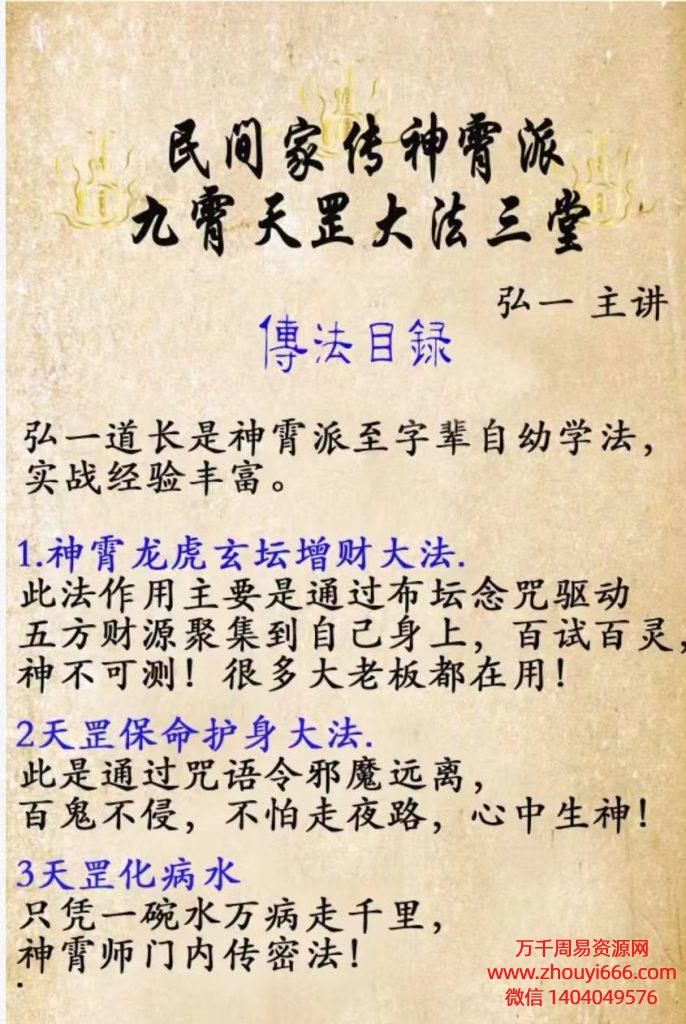 民间家传神霄派
九霄天罡大法三堂
弘一 主讲
傳法目録
弘一道长是神霄派至字辈自幼学法，
实战经验丰富。
1.神霄龙虎玄坛增财大法.
此法作用主要是通过布坛念咒驱动
五方财源聚集到自己身上，百试百灵，
神不可测！很多大老板都在用！
2天罡保命护身大法.
此是通过咒语令邪魔远离，
百鬼不侵，不怕走夜路，心中生神！
3天罡化病水
只凭一碗水万病走千里，
神霄师门内传密法！
.
万千周易资源网
www.zhouyi666.com
微信 1404049576